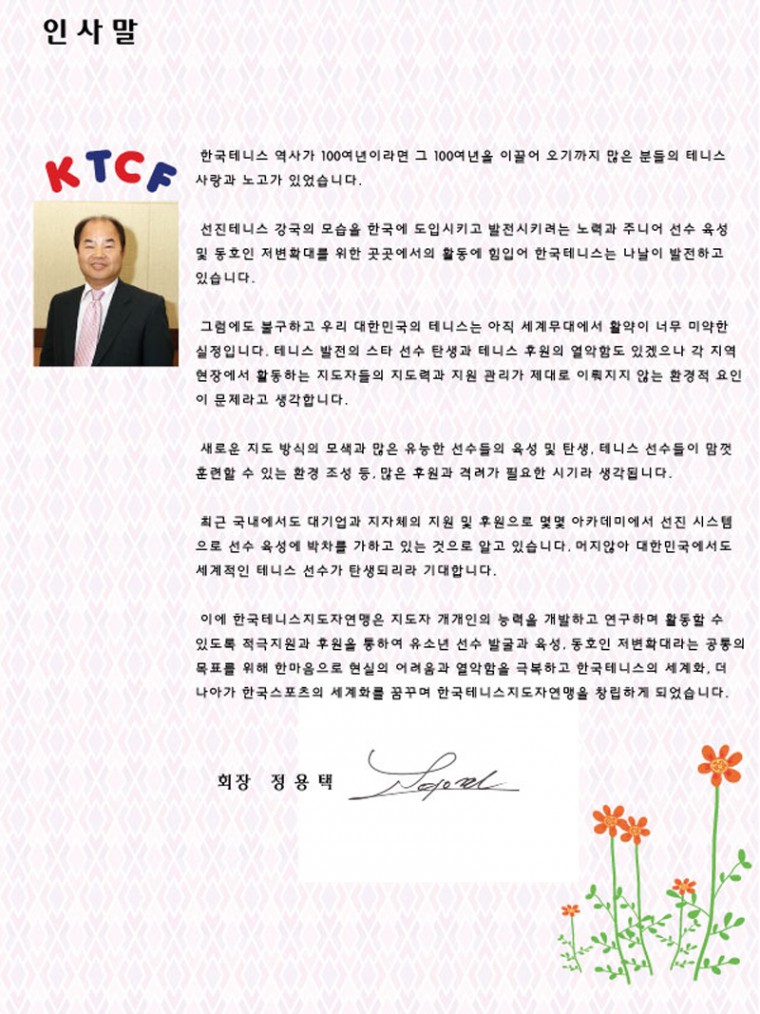 인 사 말
KTCF
한국테니스 역사가 100여년이라면 그 100여년을 이끌어 오기까지 많은 분들의 테니스
사랑과 노고가 있었습니다.
선진테니스 강국의 모습을 한국에 도입시키고 발전시키려는 노력과 주니어 선수 육성
및 동호인 저변확대를 위한 곳곳에서의 활동에 힘입어 한국테니스는 나날이 발전하고
있습니다.
그럼에도 불구하고 우리 대한민국의 테니스는 아직 세계무대에서 활약이 너무 미약한
실정입니다. 테니스 발전의 스타 선수 탄생과 테니스 후원의 열악함도 있겠으나 각 지역
현장에서 활동하는 지도자들의 지도력과 지원 관리가 제대로 이뤄지지 않는 환경적 요인
이 문제라고 생각합니다.
새로운 지도 방식의 모색과 많은 유능한 선수들의 육성 및 탄생, 테니스 선수들이 맘껏
훈련할 수 있는 환경 조성 등, 많은 후원과 격려가 필요한 시기라 생각됩니다.
최근 국내에서도 대기업과 지자체의 지원 및 후원으로 몇몇 아카데미에서 선진 시스템
으로 선수 육성에 박차를 가하고 있는 것으로 알고 있습니다. 머지않아 대한민국에서도
세계적인 테니스 선수가 탄생되리라 기대합니다.
이에 한국테니스지도자연맹은 지도자 개개인의 능력을 개발하고 연구하며 활동할 수
있도록 적극지원과 후원을 통하여 유소년 선수 발굴과 육성, 동호인 저변확대라는 공통의
목표를 위해 한마음으로 현실의 어려움과 열악함을 극복하고 한국테니스의 세계화, 더
나아가 한국스포츠의 세계화를 꿈꾸며 한국테니스지도자연맹을 창립하게 되었습니다.
회장 정용택